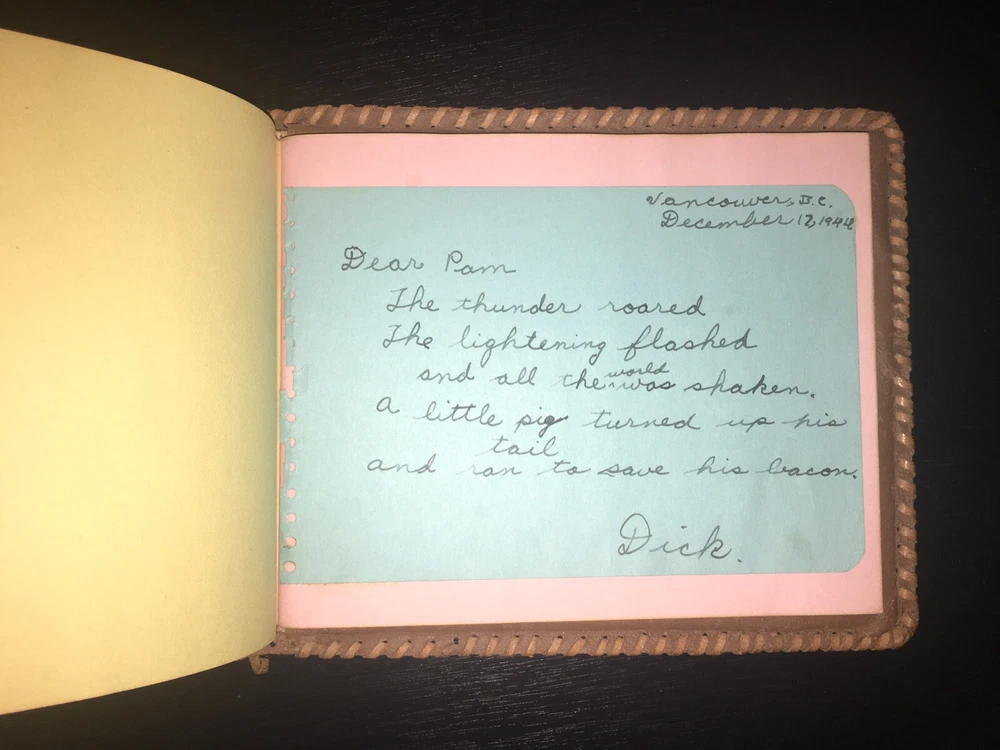 Vancouver, B.C.
December 12, 1944
Dear Pam
The thunder roared
The lightening flashed
and all the world was shaken.
A little pig turned up his
tail
and ran to save his bacon.
Dick.